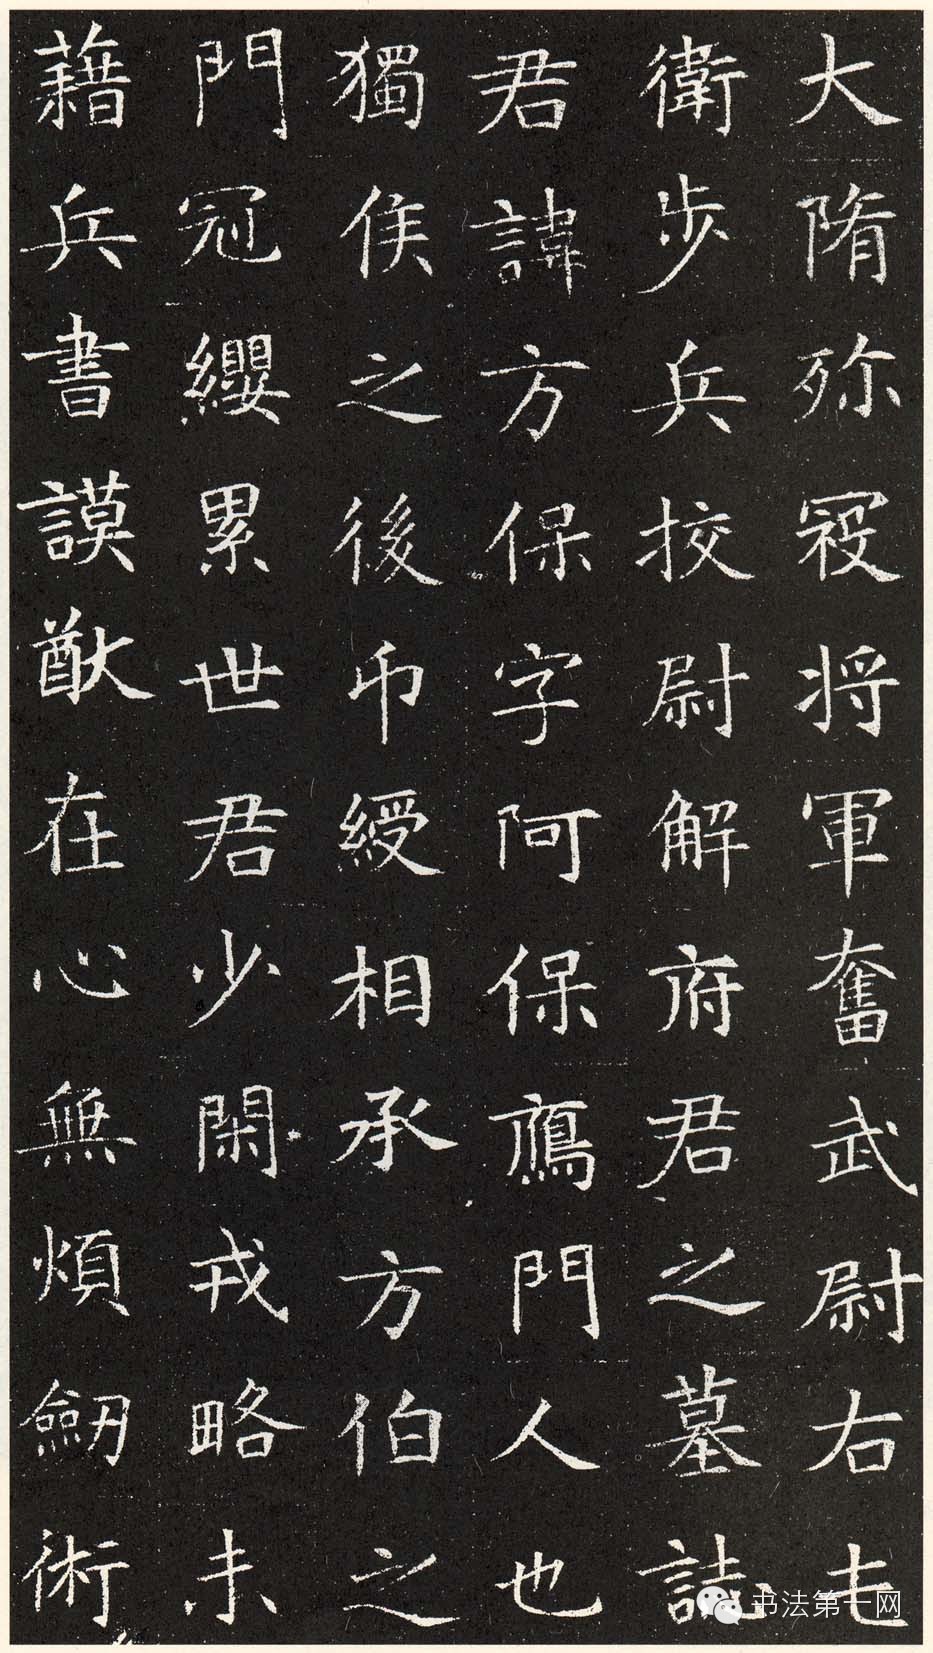 大隋殄寇将軍奮武尉右亡
衛步兵挍尉解府君之墓誌
君諱方保字阿保鴈門人也
獨侯之後印綬相承方伯之
門冠纓累世君少閑戎略未
藉兵書謨猷在心無煩劒術
书法第一网